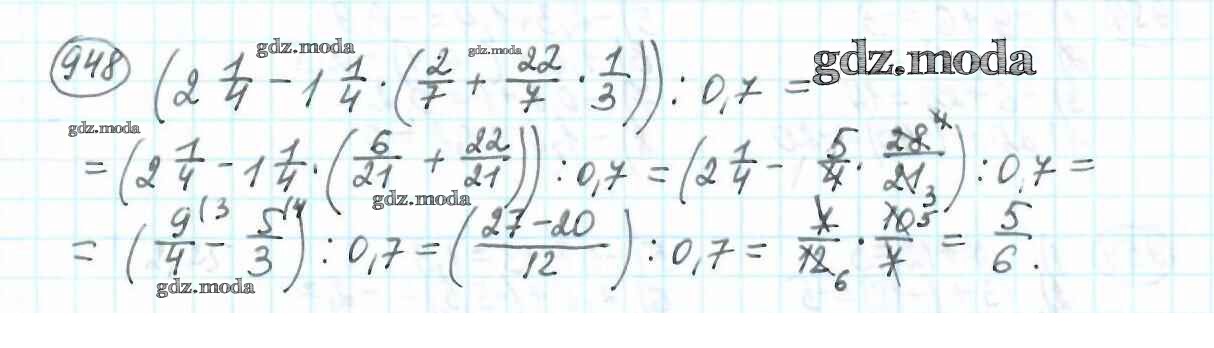 gdz.moda gdz.moda
948 (2 1/4 − 1 1/4 · (2/7 + 22/7 · 1/3)) : 0,7 = gdz.moda
gdz.moda
= (2 1/4 − 1 1/4 · (6/21 + 22/21)) : 0,7 = (2 1/4 − 5/4 · 28 4/21 3) : 0,7 =
gdz.moda
= (9/4 (3 − 5/3 (4) : 0,7 = (27−20/12) : 0,7 = 7/12 6 · 10 5/7 = 5/6.
gdz.moda